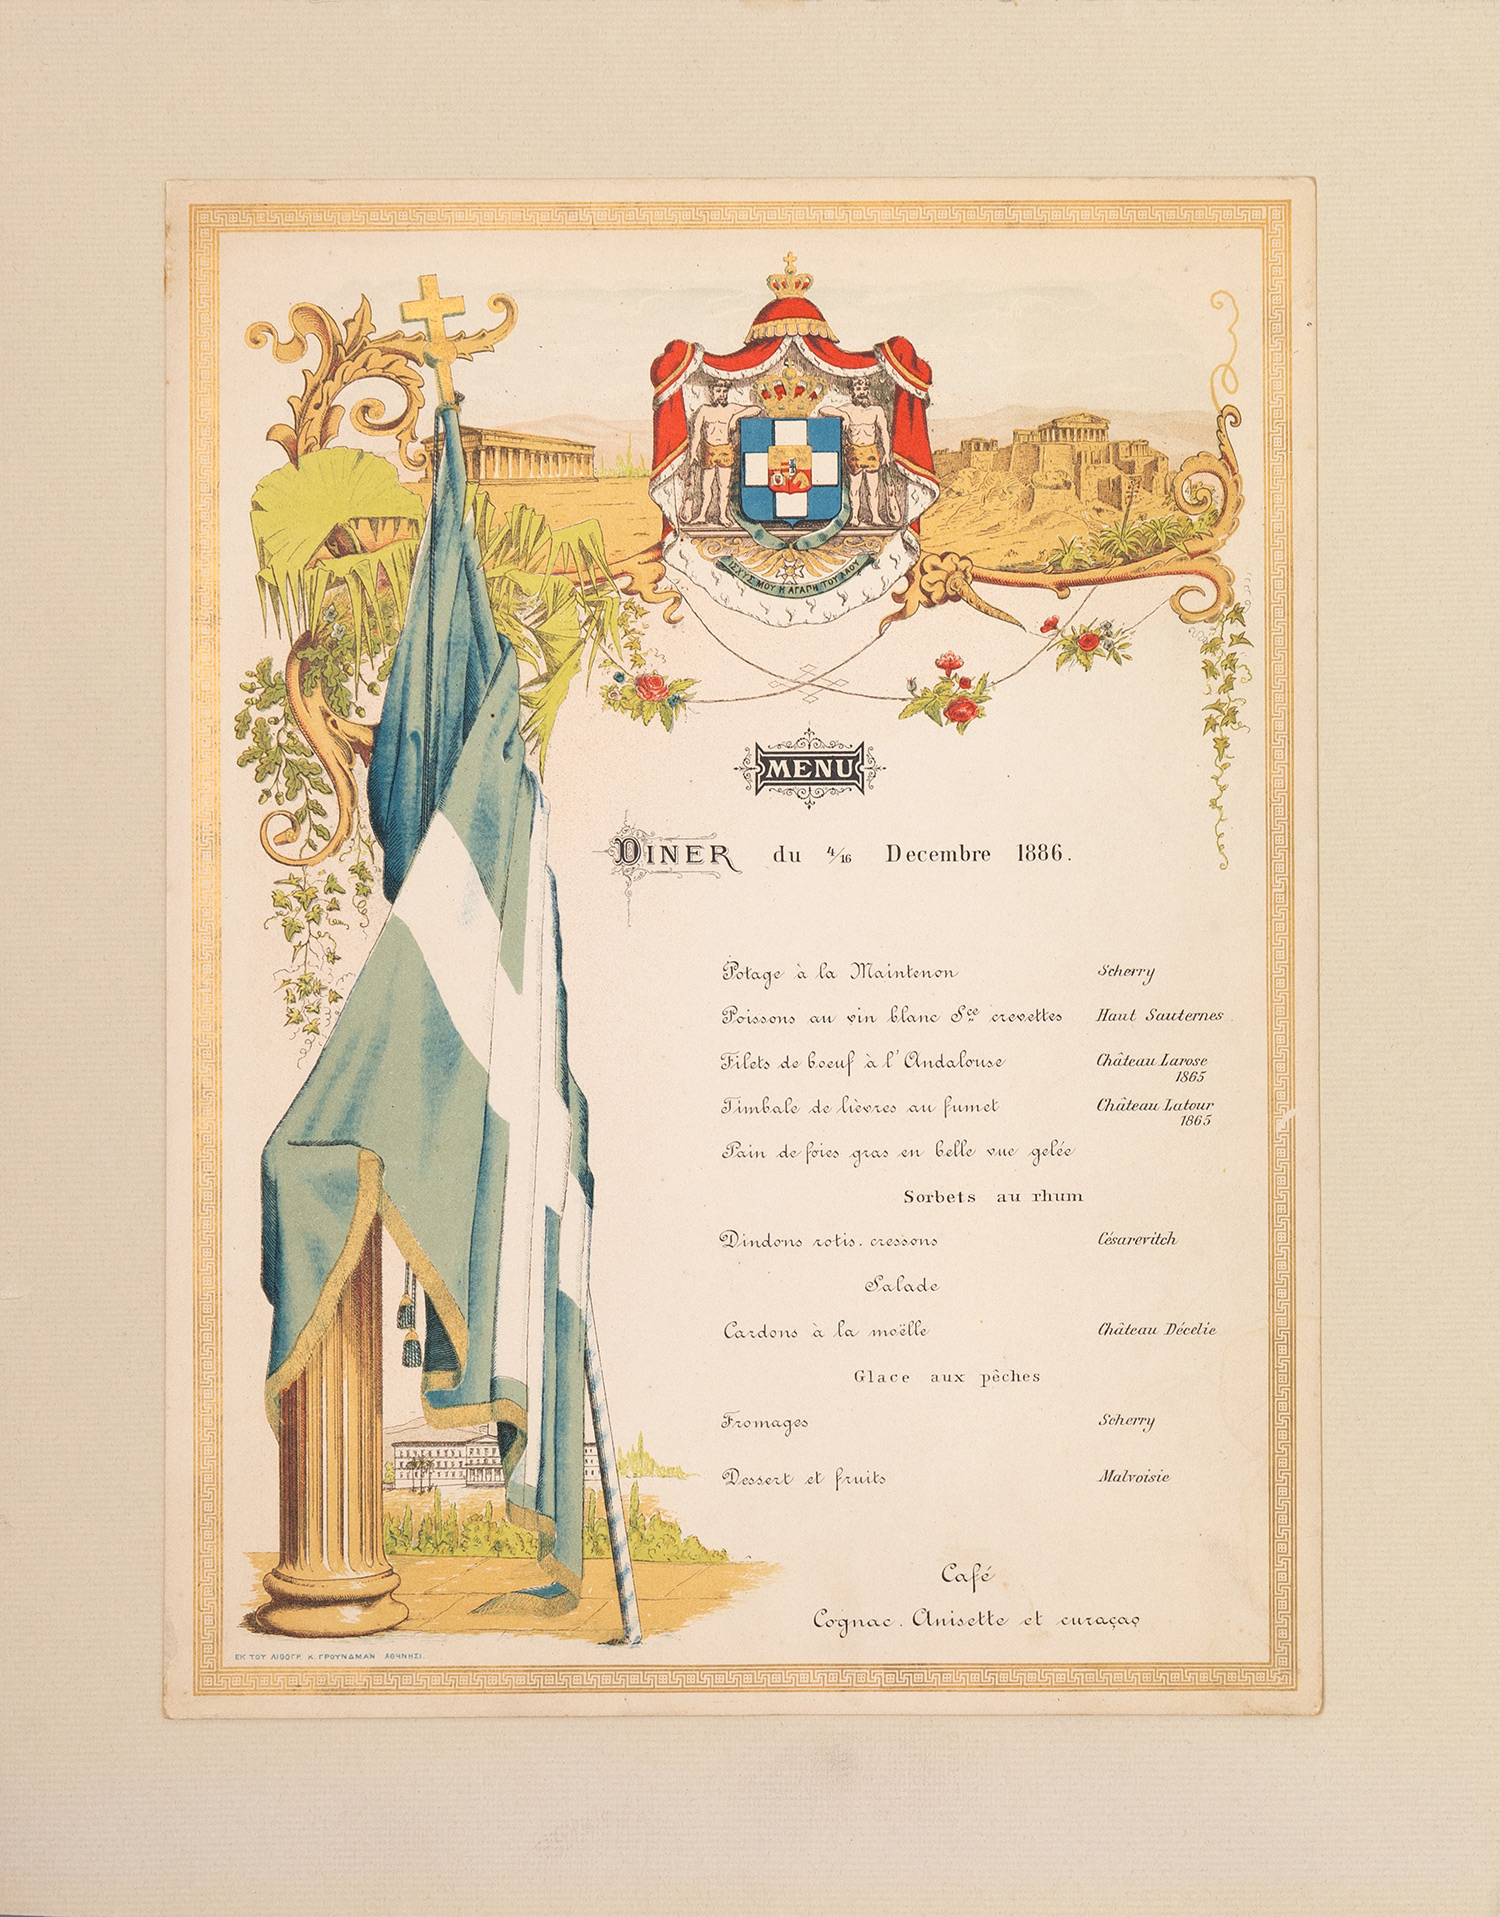 ΙΣΧΥΣ ΜΟΥ Η ΑΓΑΠΗ ΤΟΥ ΛΑΟΥ
MENU
DINER du 4/16 Decembre 1886.
Potage à la Maintenon Scherry
Poissons au vin blanc Sce crevettes Haut Sauternes
Filets de boeuf à l'Andalouse Château Larose
1865
Timbale de lièvres au fumet Château Latour
1865
Pain de foies gras en belle vue gelée
Sorbets au rhum
Dindons rotis. cressons Césarevitch
Salade
Cardons à la moëlle Château Décelie
Glace aux pêches
Fromages Scherry
Dessert et fruits Malvoisie
Café
Cognac. Anisette et curaçao
ΕΚ ΤΟΥ ΛΙΘΟΓΡ. Κ. ΓΡΟΥΝΔΜΑΝ ΑΘΗΝΗΣΙ.